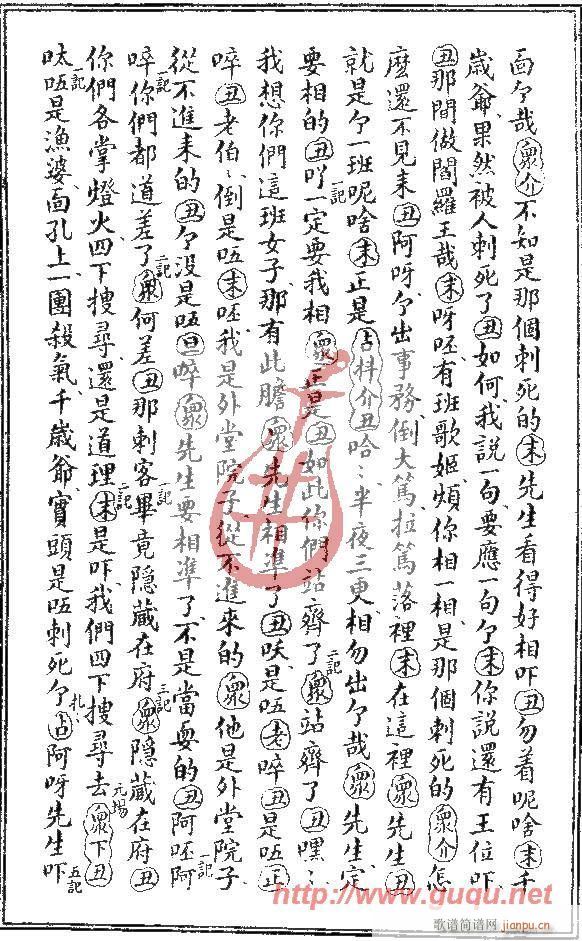 面勺哉衆介不知是那個刺死的末先生看得好相吓丑勿着呢啥末千
歲爺果然被人刺死了丑如何我説一句要應一句勺末你説還有王位吓
丑那間做閻羅王哉末呀呸有班歌姬煩你相一相是那個刺死的衆介怎
麽還不見来丑阿呀勺出事務倒大篤拉篤落裡末在這裡衆先生丑
就是勺一班呢啥末正是占抖介丑哈〻半夜三更相勿出勺哉衆先生定
要相的丑吖一定要我相衆正是丑如此你們站齊了衆站齊了丑嘿〻
我想你們這班女子那有此膽衆先生相準了丑呔是唔老啐丑是唔正
啐丑老伯〻倒是唔末呸我是外堂院子從不進來的衆他是外堂院子
從不進来的丑勺没是唔旦啐衆先生要相準了不是當耍的丑阿呸阿
啐你們都道差了衆何差丑那刺客畢竟隱藏在府衆隱藏在府丑
你們各掌燈火四下搜尋還是道理末是吓我們四下搜尋去衆下丑
呔唔是漁婆面孔上一團殺氣千歲爺實頭是唔刺死勺占阿呀先生吓
http://www.guqu.net
歌谱简谱网
jianpu.cn